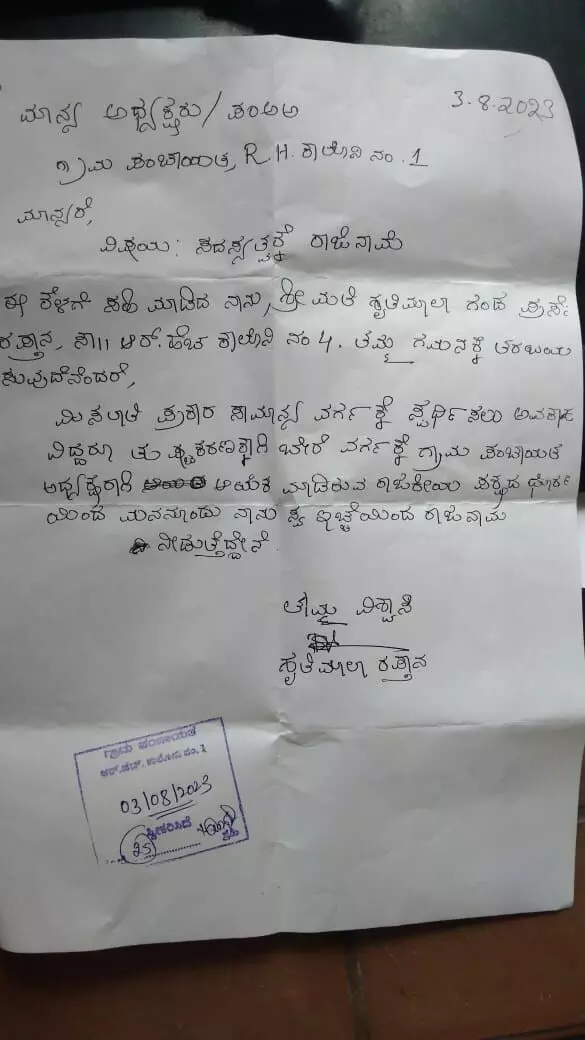 3.8.2023
ಮಾನ್ಯ ಅಧ್ಯಕ್ಷರು/ಪಂಅಅ
ಗ್ರಾಮ ಪಂಚಾಯತ, R.H. ಕಾಲೋನಿ ನಂ.1
ಮಾನ್ಯರೆ,
ವಿಷಯ: ಸದಸ್ಯತ್ವಕ್ಕೆ ರಾಜಿನಾಮೆ
ಈ ಕೆಳಗೆ ಸಹಿ ಮಾಡಿದ ನಾನು, ಶ್ರೀಮತಿ ಕೃತಿಮಾಲಾ ಗಂಡ
ಕಪ್ತಾನ, ಸಾ।। ಆರ್.ಹೆಚ ಕಾಲೋನಿ ನಂ 4. ತಮ್ಮ ಗಮನಕ್ಕೆ ತರಬಯ
ಸುವುದೆನೆಂದರೆ,
ಮಿಸಲಾತಿ ಪ್ರಕಾರ ಸಾಮಾನ್ಯ ವರ್ಗಕ್ಕೆ ಸ್ಪರ್ಧಿಸಲು ಅವಕಾಶ
ವಿದ್ದರೂ ತುಷ್ಟಿಕರಣಕ್ಕಾಗಿ ಬೇರೆ ವರ್ಗಕ್ಕೆ ಗ್ರಾಮ ಪಂಚಾಯತ
ಅಧ್ಯಕ್ಷರಾಗಿ ಆಯಕೆ ಮಾಡಿರುವ ರಾಜಕೀಯ ಪಕ್ಷದ ಧೋರಣೆ
ಯಿಂದ ಮನನೊಂದು ನಾನು ಸ್ವ ಇಚ್ಛೆಯಿಂದ ರಾಜಿನಾಮೆ
ನೀಡುತ್ತಿದ್ದೇನೆ.
ತಮ್ಮ ವಿಶ್ವಾಸಿ
ಕೃತಿಮಾಲಾ ಕಪ್ತಾನ
ಗ್ರಾಮ ಪಂಚಾಯತ
ಆರ್.ಹೆಚ್. ಕಾಲೋನಿ ನಂ. 1
03/08/2023
ಸ್ವೀಕರಿಸಿದೆ
ಸಹಿ